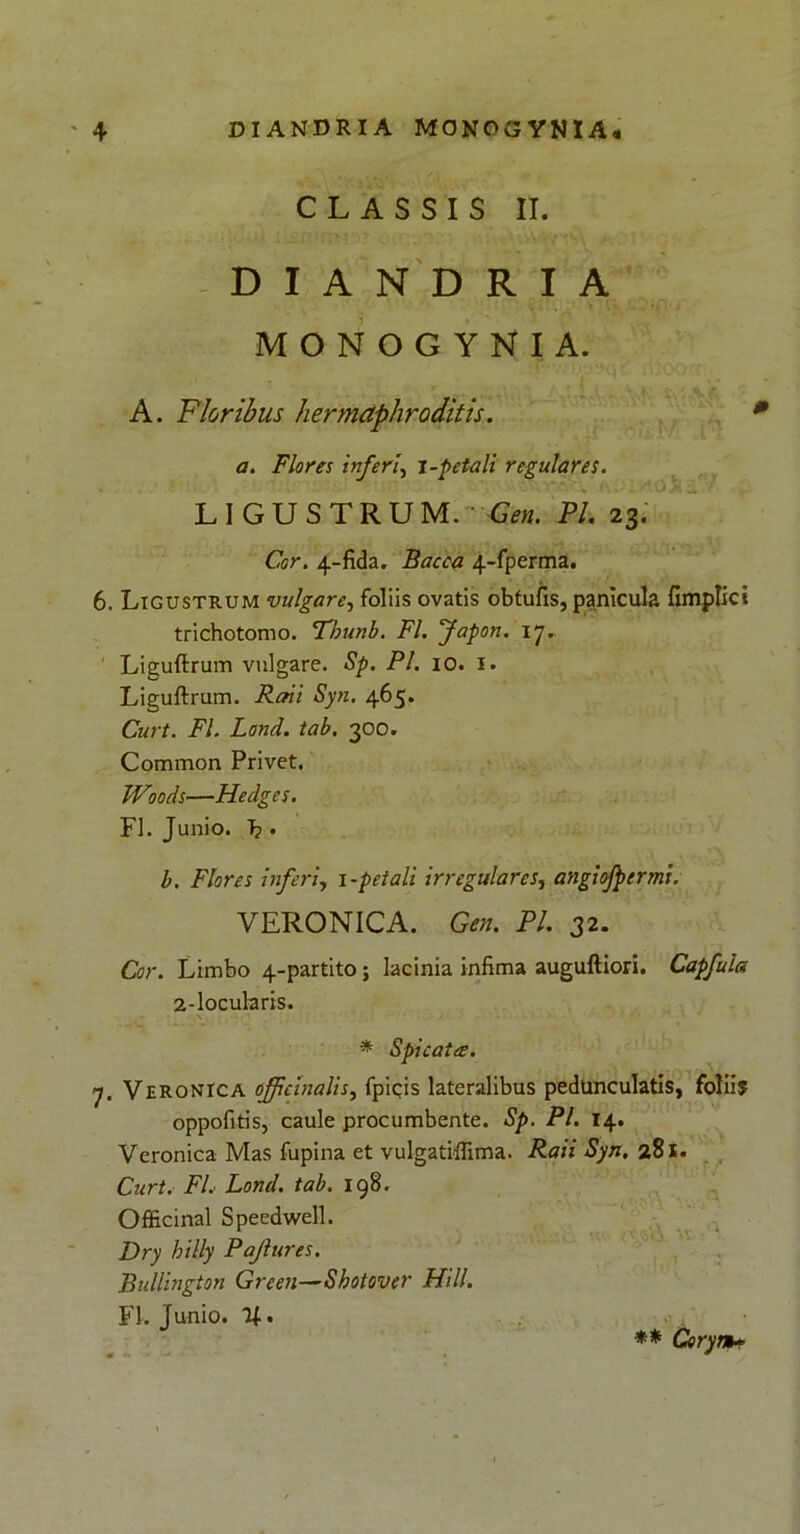 4 DIANDRIA MONOGYNIA.
CLASSIS II.
DIANDRIA
MONOGYNIA.
A. Floribus hermaphroditis.
a. Flores inferi, 1-petali regulares.
LIGUSTRUM. Gen. Pl. 23.
Cor. 4-fida. Bacca 4-ſperma.
6. LIGUSTRUM vulgare, foliis ovatis obtuſis, panicula ſimplici
trichotomo. Thunb. Fl. Japon. 17.
Liguſtrum vulgare. Sp. Pl. 10. 1.
Liguſtrum. Raii Syn. 465.
Curt. Fl. Lond. tab. 300.
Common Privet.
Woods—Hedges.
Fl. Junio. ♄.
b. Flores inferi, 1-petali irregulares, angioſpermi.
VERONICA. Gen. Pl. 32.
Cor. Limbo 4-partito; lacinia infima auguſtiori. Capſula
2-locularis.
* Spicatæ.
7. VERONICA officinalis, ſpicis lateralibus pedunculatis, foliis
oppoſitis, caule procumbente. Sp. Pl. 14.
Veronica Mas ſupina et vulgatiſſima. Raii Syn. 281.
Curt. Fl. Lond. tab. 198.
Officinal Speedwell.
Dry hilly Paſtures.
Bullington Green—Shotover Hill.
Fl. Junio. ♃.
** Corym-